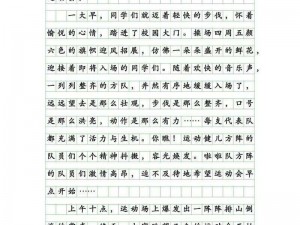 一大早，同学们就迈着轻快的步伐，怀着
愉悦的心情，踏进了校园大门。操场四周五颜
六色的旗帜迎风招展，仿佛一朵朵盛开的鲜花，
迎接着即将入场的同学们。随着欢快的音乐声，
一列列整齐的方队，井然有序地缓缓入场了，
远远望去是那么壮观，步伐是那么整齐，口号
是那么洪亮，动作是那么有力……每支代表队
都充满了活力与生机。你瞧！运动健儿方阵的
队员们个个精神抖擞，容光焕发。啦啦队方阵
的队员们激情高昂，迫不及待地希望运动会早
点开始……
上午十点，运动场上爆发出一阵阵排山倒